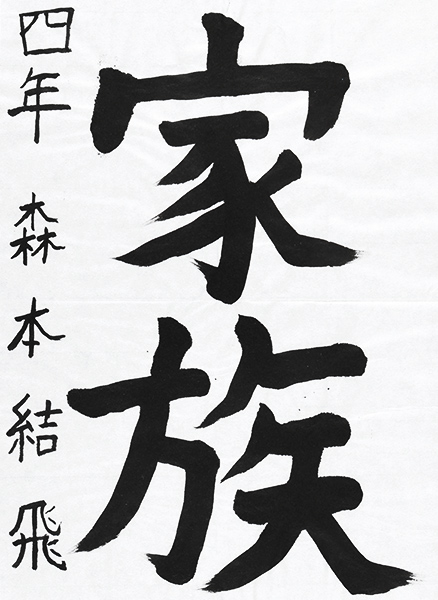 家族
四年 森本結飛